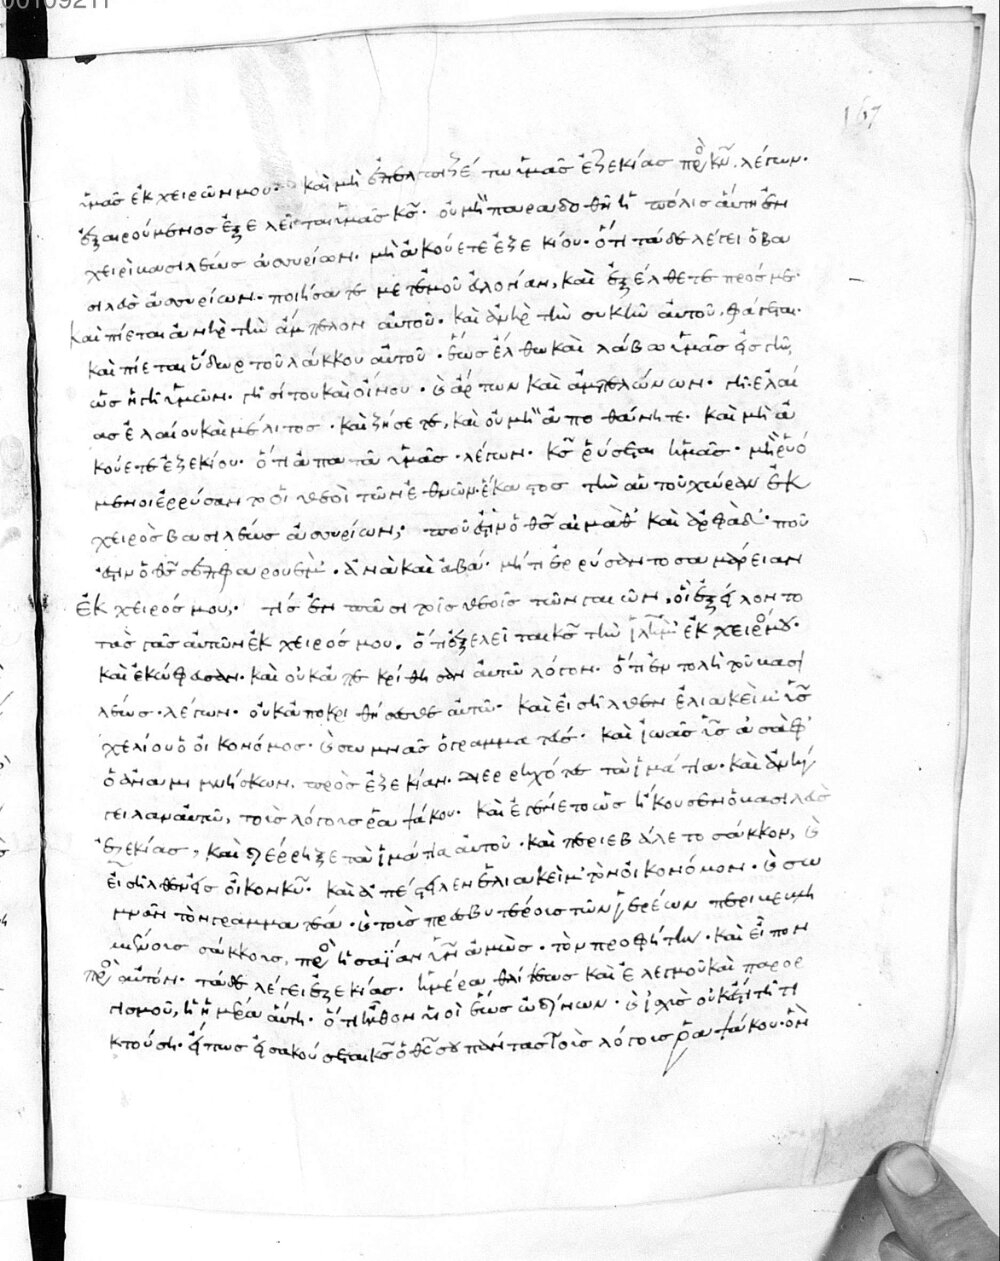 00109211
167
ὑμᾶς ἐκ χειρῶν μου· καὶ μὴ ἐπελπιζέτω ὑμᾶς ἐζεκίας πρὸ κν̅. λέγων·
ἐξαιρούμενος ἐξελεῖται ὑμᾶς κς̅· οὐ μὴ παραδοθῆ ἡ πόλις αὕτη ἐν
χειρὶ βασιλέως ἀσσυρίων· μὴ ἀκούετε ἐζεκίου· ὅτι τάδε λέγει ὁ βα
σιλεὺς ἀσσυρίων· ποιήσατε μετ' ἐμοῦ εὐλογίαν, καὶ ἐξέλθετε πρός με·
καὶ πίεται ἀνὴρ τὴν ἄμπελον αὐτοῦ· καὶ ἀνὴρ τὴν συκῆν αὐτοῦ φάγεται·
καὶ πίεται ὕδωρ τοῦ λάκκου αὐτοῦ· ἕως ἔλθω καὶ λάβω ὑμᾶς εἰς γῆν,
ὡς ἡ γῆ ὑμῶν· γῆ σίτου καὶ οἴνου· καὶ ἄρτων καὶ ἀμπελώνων· γῆ ἐλαί
ας ἐλαίου καὶ μέλιτος· καὶ ζήσετε, καὶ οὐ μὴ ἀποθάνητε· καὶ μὴ ἀ
κούετε ἐζεκίου· ὅτι ἀπατᾶ ὑμᾶς λέγων· κς̅ ῥύσεται ἡμᾶς· μὴ ῥυό
μενοι ἐρρύσαντο οἱ θεοὶ τῶν ἐθνῶν ἕκαστος τὴν αὐτοῦ χώραν ἐκ
χειρὸς βασιλέως ἀσσυρίων; ποῦ ἐστιν ὁ θς̅ αἱμὰθ καὶ ἀρφάδ· ποῦ
ἐστιν ὁ θς̅ σεπφαρουέμ· ἀνὰ καὶ ἀβά· μήτι ἐρρύσαντο σαμάρειαν
ἐκ χειρός μου, τίς ἐν πᾶσι τοῖς θεοῖς τῶν γαιῶν, οἳ ἐξείλοντο
τὰς γᾶς αὐτῶν ἐκ χειρός μου, ὅτι ἐξελεῖται κς̅ τὴν ἰλημ ἐκ χειρό μου·
καὶ ἐκώφευσαν· καὶ οὐκ ἀπεκρίθησαν αὐτῶ λόγον· ὅτι ἐντολὴ τοῦ βασι
λέως λέγων· οὐκ ἀποκριθήσεσθε αὐτῶ· καὶ εἰσῆλθεν ἐλιακεὶμ υς̅
χελίου ὁ οἰκονόμος· καὶ σωμνᾶς ὁ γραμματεύς· καὶ ἰωᾶς υς̅ ἀσὰφ
ὁ ἀναμιμνήσκων, πρὸς ἐζεκίαν διερρηχότες τὰ ἱμάτια· καὶ ἀνήγ
γειλαν αὐτῶ, τοὺς λόγους ῥαψάκου· καὶ ἐγένετο ὡς ἤκουσεν ὁ βασιλεὺς
ἐζεκίας, καὶ διέρρηξε τὰ ἱμάτια αὐτοῦ· καὶ περιεβάλετο σάκκον, καὶ
εἰσῆλθεν εἰς οἶκον κυ̅· καὶ ἀπέστειλεν ἐλιακεὶμ τὸν οἰκονόμον· καὶ σω
μνᾶν τὸν γραμματέα· καὶ τοὺς πρεσβυτέρους τῶν ἱερέων περιβεβλη
μένους σάκκους, πρὸ ἡσαΐαν υν̅ ἀμὼς· τὸν προφήτην· καὶ εἶπον
πρὸ αὐτόν· τάδε λέγει ἐζεκίας· ἡμέρα θλίψεως καὶ ἐλεγμοῦ καὶ παροξ
γισμοῦ, ἡ ἡμέρα αὕτη· ὅτι ἦλθον υἱοὶ ἕως ὠδίνων· καὶ ἰσχὺς οὐκ ἔστι τῆ τι
κτούση· εἴπως εἰσακούσεται κς̅ ὁ θς̅ σου πάντας τοὺς λόγους ῥαψάκου· ὃν